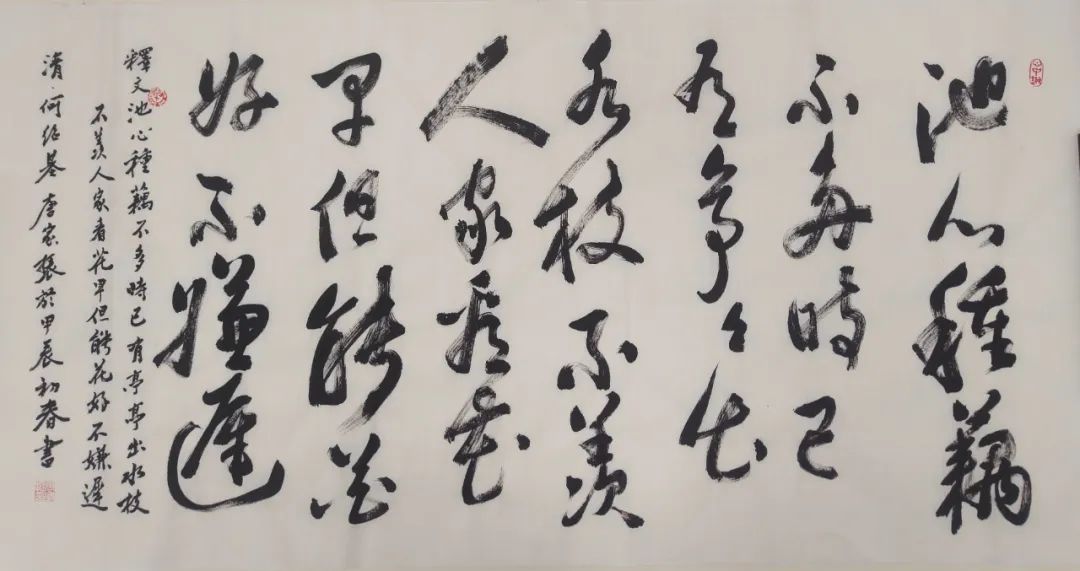 池心種藕
不多時已
有亭々出
水枝不羡
人家看花
早但能花
好不嫌遲
釋文池心種藕不多時已有亭亭出水枝
不羡人家看花早但能花好不嫌遲
清·何绍基 張於甲辰初春書